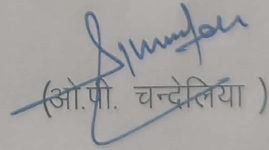 (ओ.पी. चन्देलिया )